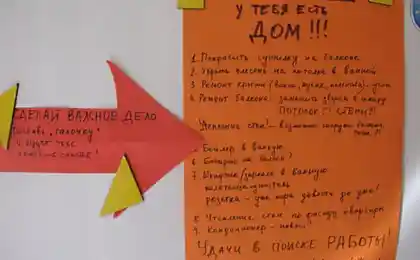 У ТЕБЯ ЕСТЬ
ДОМ!!!
1. Покрасить сушилку на балконе
2. Убрать плесень на потолке в ванной
3. Ремонт кухни
4. Ремонт балкона, заменить двери к нему
ПОТОЛОК!! СТЕНЫ!!
Утепление стен!
5. Бойлер в ванную
6.
7. Шкафчик/зеркало в ванную
розетка - уже пора довести до ума!
8. Утепление стен по фасаду квартиры
9. Кондиционер - новый!
УДАЧИ В ПОИСКЕ РАБОТЫ!
СДЕЛАЙ ВАЖНОЕ ДЕЛО
ставь „галочку"
и будет тебе